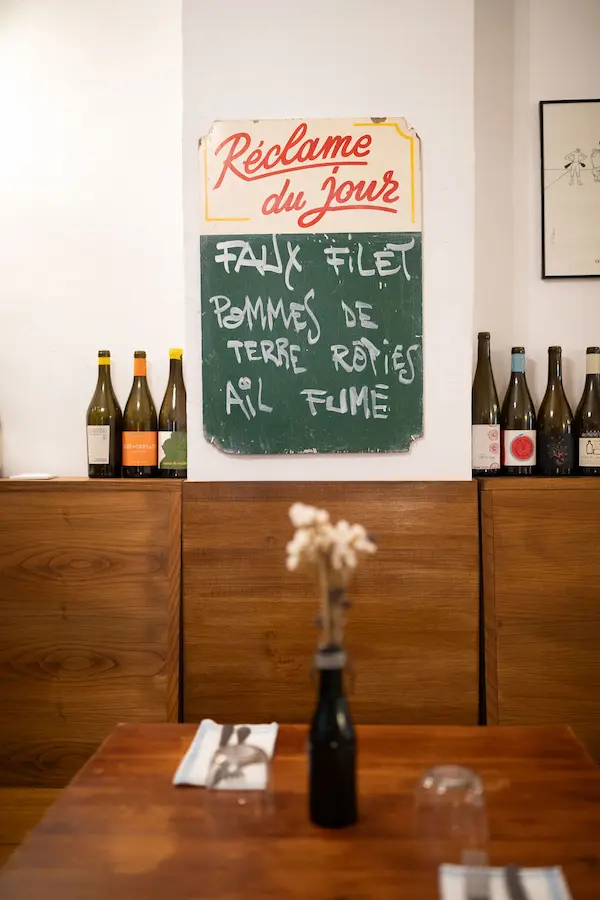 Réclame
du jour
FAUX FILET
POMMES DE
TERRE RÔTIES
AÏL FUMÉ